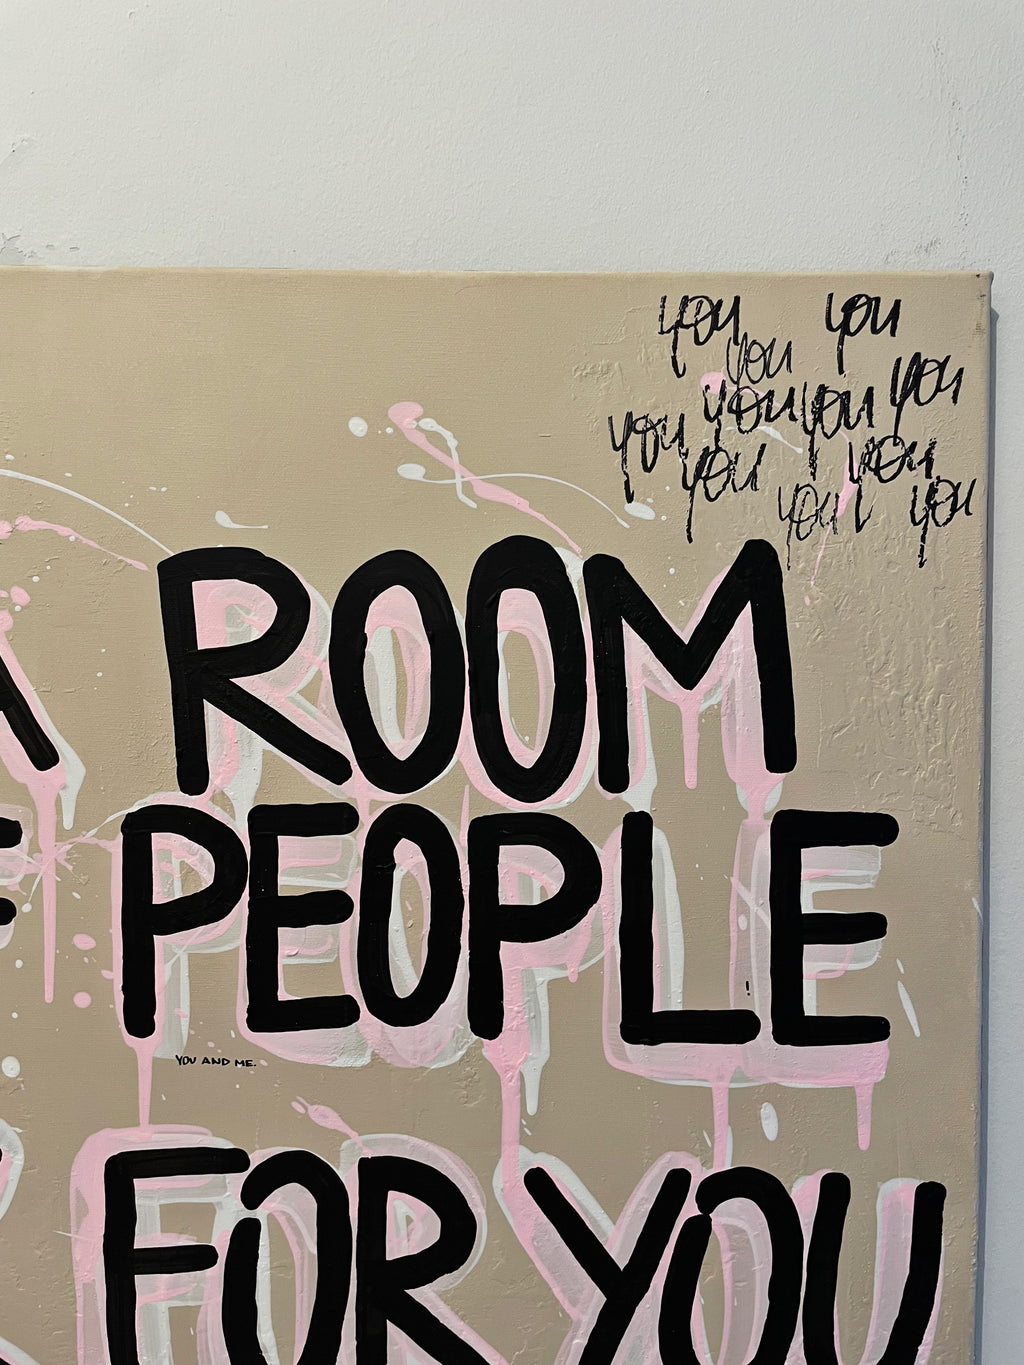 you you
you
you you you
you you
you
you you
A ROOM
PEOPLE
!
YOU AND ME.
FOR YOU